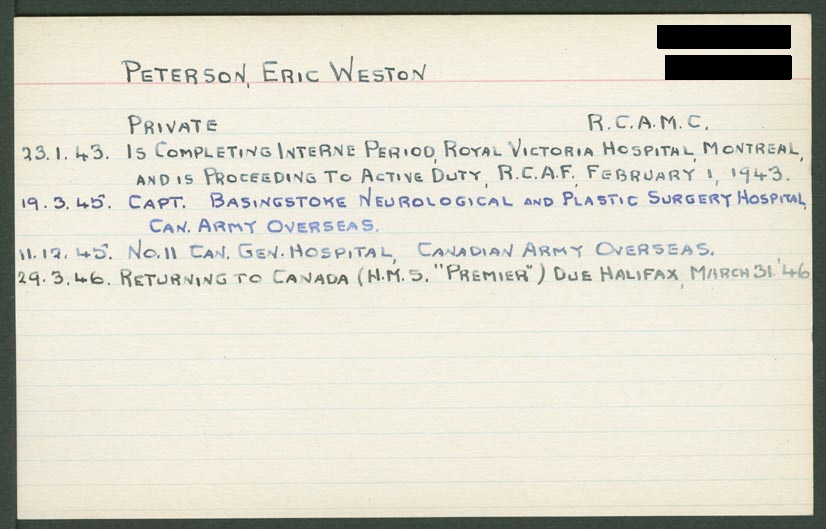 PETERSON, ERIC WESTON
PRIVATE R.C.A.M.C.
23.1.43. IS COMPLETING INTERNE PERIOD, ROYAL VICTORIA HOSPITAL, MONTREAL,
AND IS PROCEEDING TO ACTIVE DUTY, R.C.A.F., FEBRUARY 1, 1943.
19.3.45. CAPT. BASINGSTOKE NEUROLOGICAL AND PLASTIC SURGERY HOSPITAL,
CAN. ARMY OVERSEAS.
11.12.45. NO. 11 CAN. GEN. HOSPITAL, CANADIAN ARMY OVERSEAS.
29.3.46. RETURNING TO CANADA (H.M.S. "PREMIER") DUE HALIFAX, MARCH 31. '46